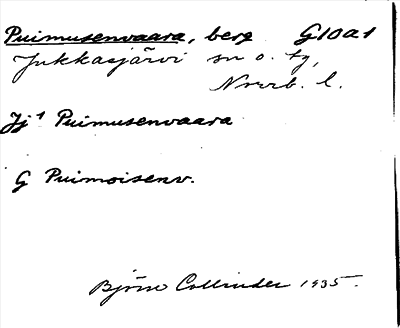 Puimusenvaara, berg G10a1
Jukkasjärvi sn o. tg,
Nrrb. l.
Jj 1 Puimusenvaara
G Puimoisenv.
Björn Collinder 1935.